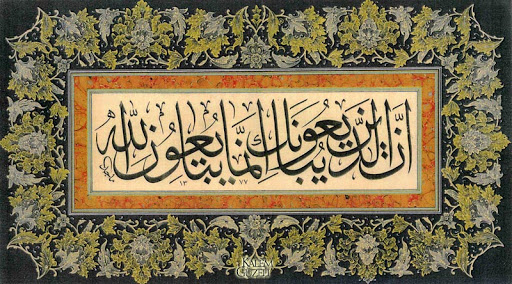 اِنَّ الَّذينَ يُبايعونَكَ اِنَّما يُبايعونَ اللّٰه
١٣٧٧
KALEM
GÜZELİ